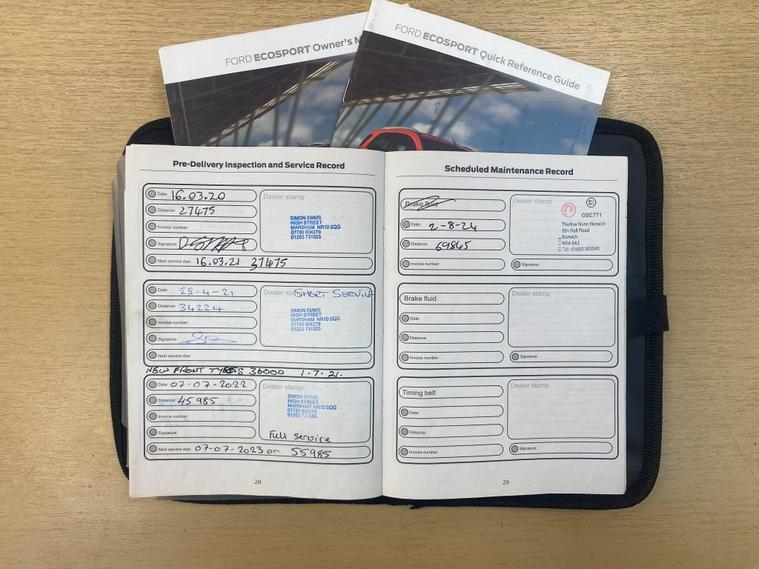 FORD ECOSPORT Owner's M
FORD ECOSPORT Quick Reference Guide
Pre-Delivery Inspection and Service Record
Date: 16.03.20
Distance: 27475
Invoice number:
Signature:
Next service due: 16.03.21 37475
Dealer stamp
SIMON EMMS
HIGH STREET
MARSHAM NR10 5QG
07780 604279
01263 731555
Date: 28-4-21
Distance: 34224
Invoice number:
Signature:
Next service due:
Dealer stamp SHORT SERVICE
SIMON EMMS
HIGH STREET
MARSHAM NR10 5QG
07780 604279
01263 731555
NEW FRONT TYRES 36000 1.7.21.
Date: 07-07-2022
Distance: 45985
Invoice number:
Signature:
Next service due: 07-07-2023 or 55985
Dealer stamp
SIMON EMMS
HIGH STREET
MARSHAM NR10 5QG
07780 604279
01263 731555
Full service
28
Scheduled Maintenance Record
Brake fluid
Date: 2-8-24
Distance: 69845
Invoice number:
Signature:
Dealer stamp
GBE771
Thurlow Nunn Norwich
Norwich
Brake fluid
Date:
Distance:
Invoice number:
Signature:
Dealer stamp
Timing belt
Date:
Distance:
Invoice number:
Signature:
Dealer stamp
29